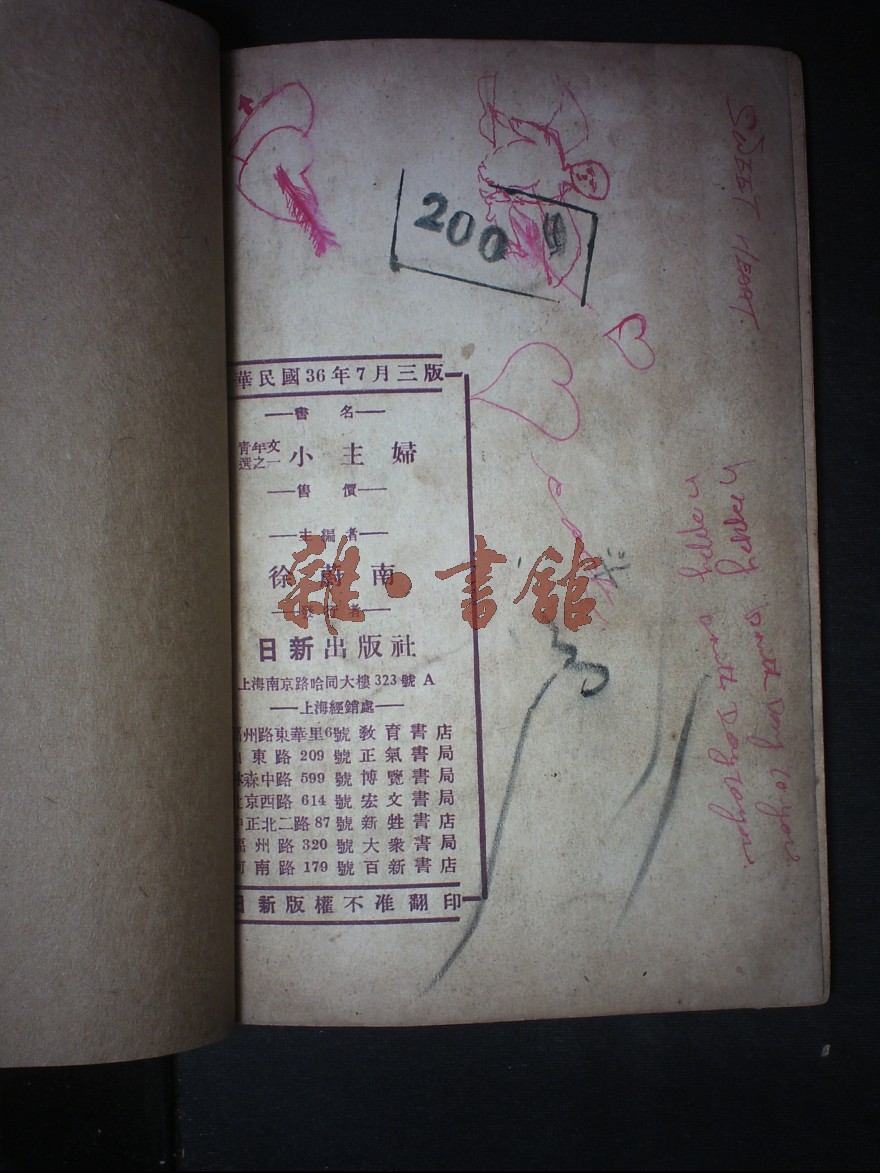 SWEET HEART.
200
華民國36年7月三版
書名
青年文
選之一 小主婦
售價
主編者
徐蔚南
發行者
日新出版社
上海南京路哈同大樓323號A
上海經銷處
州路東華里6號 教育書店
東路209號 正氣書局
森中路599號 博覽書局
京西路614號 宏文書局
正北二路87號 新甡書店
福州路320號 大衆書局
河南路179號 百新書店
日新版權不准翻印
雜·書館
happy
to you
to you.